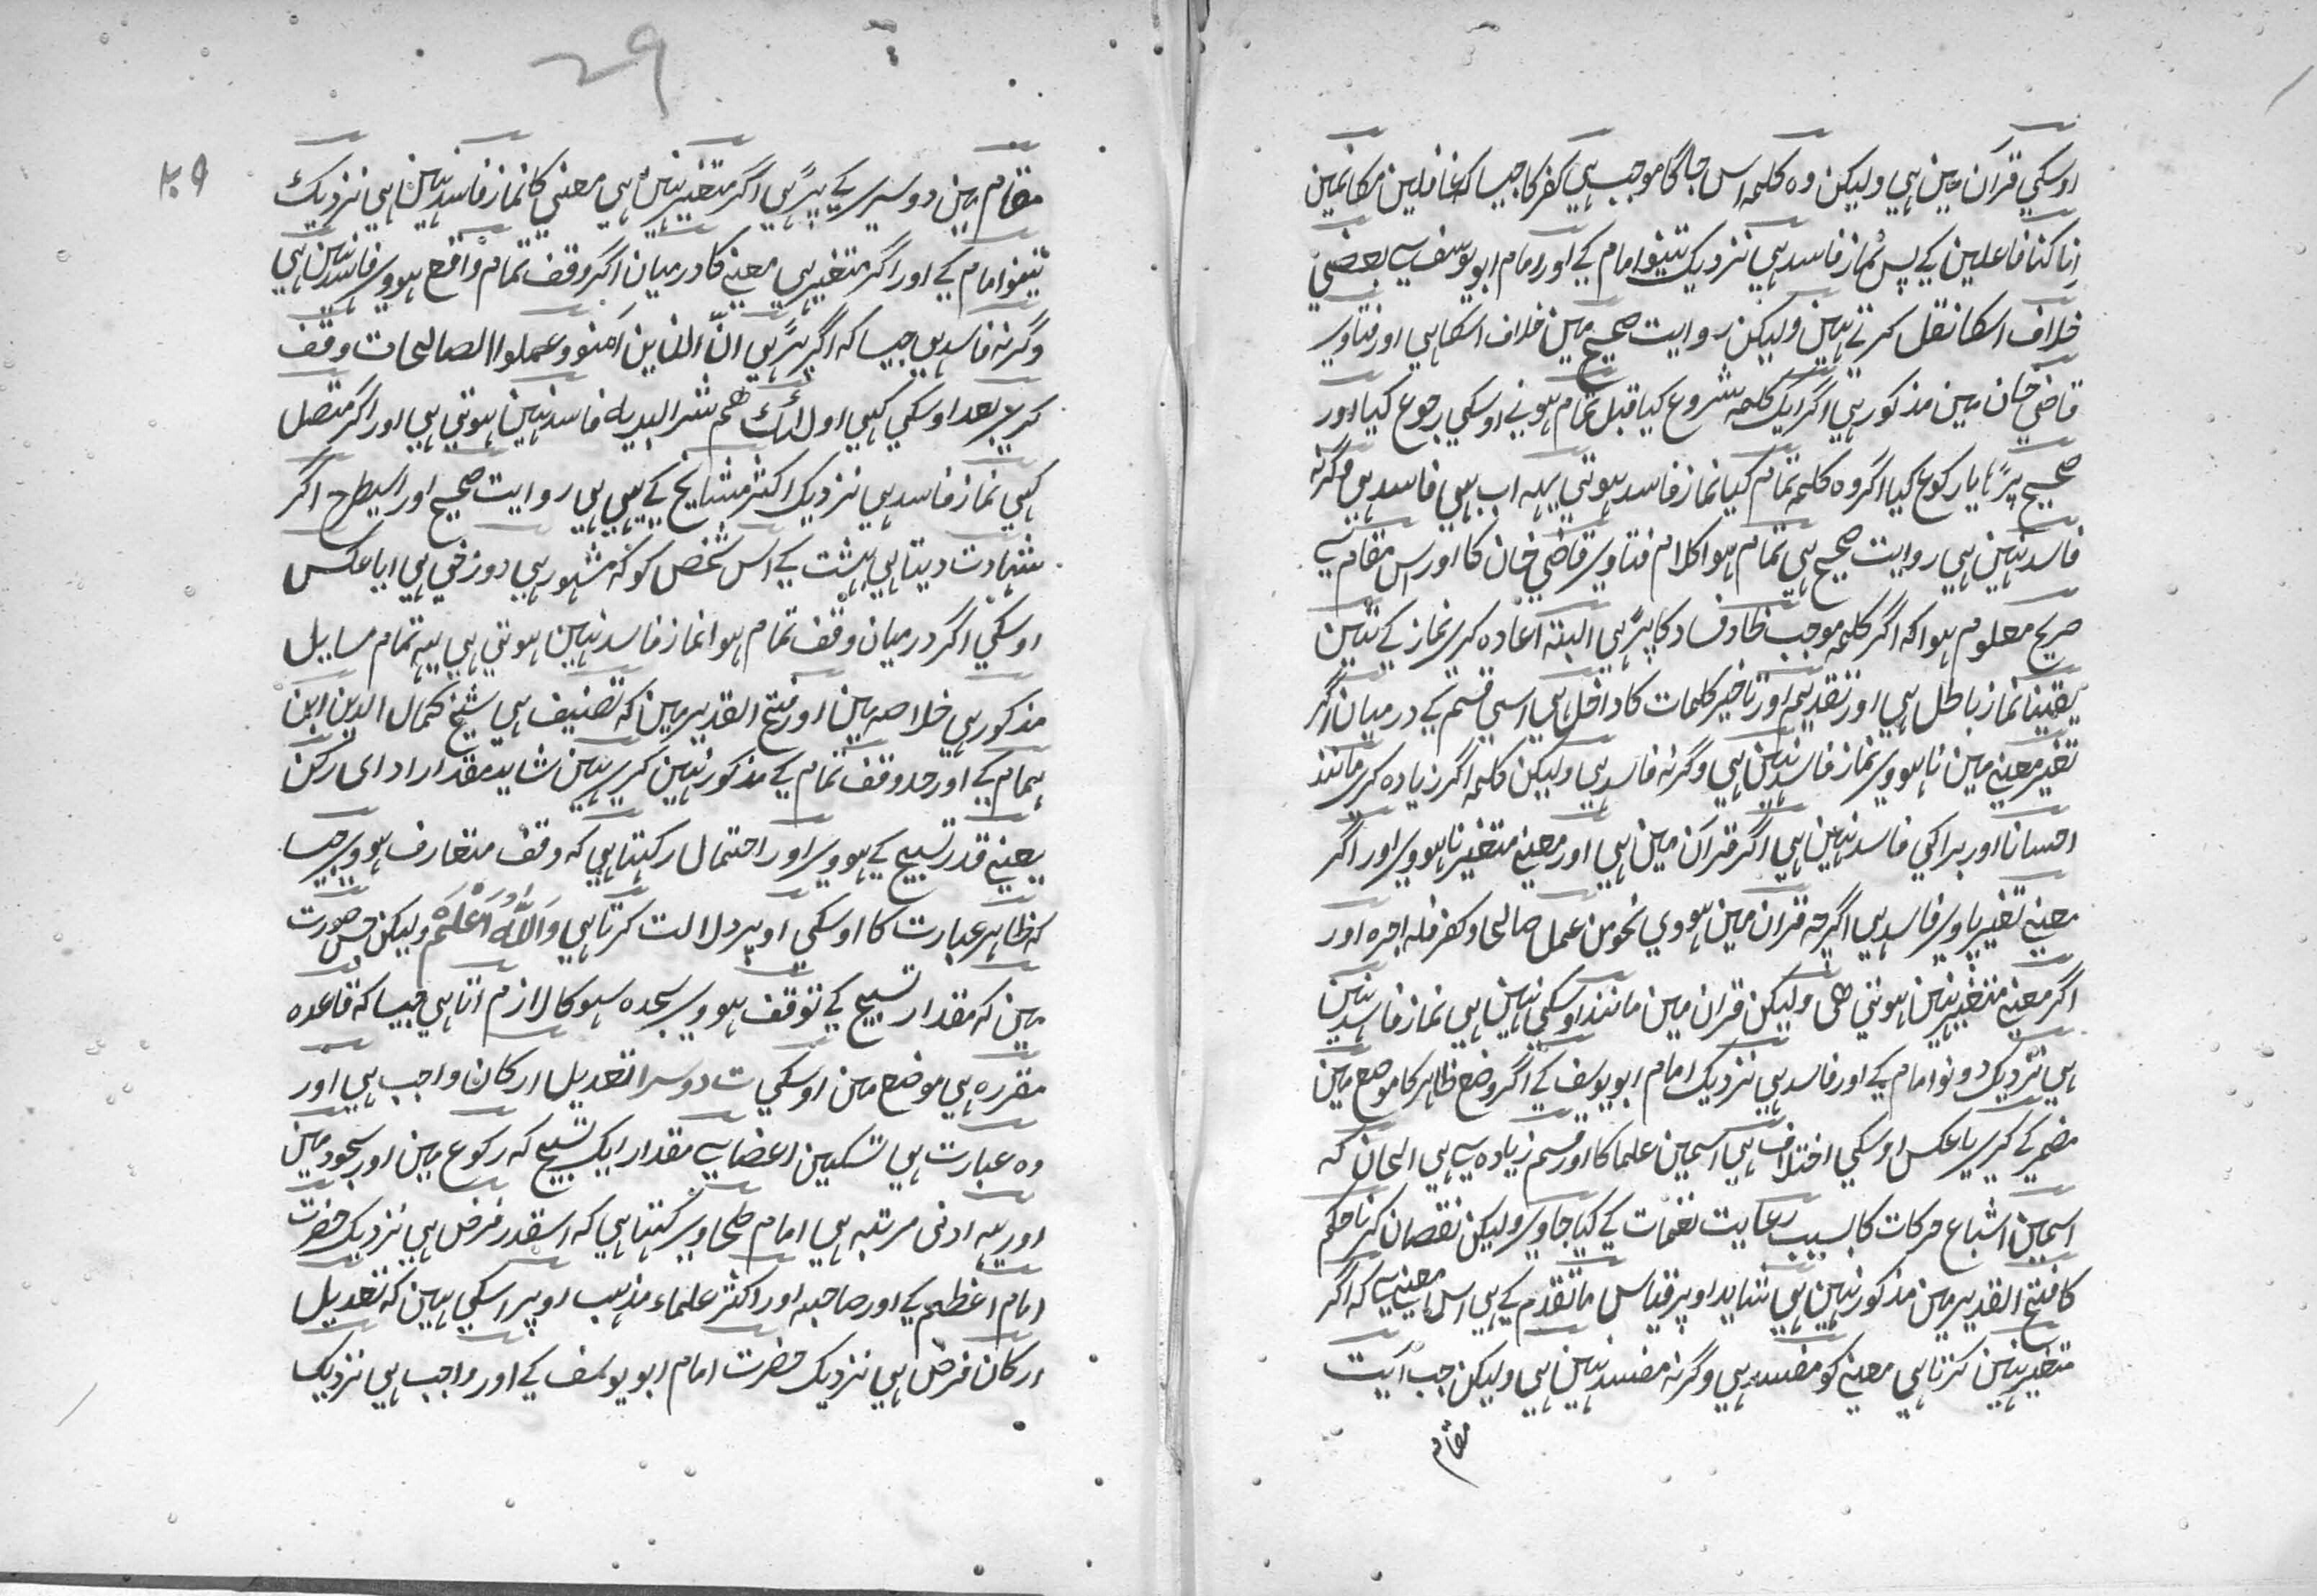 اوسکي قرآن مین هي ولیکن وه کلمه اس جاگا موجب هي کفر کا جیسا که غافلین مکانمین
اِنا کنا فاعلین کے پس نماز فاسد هي نزدیک تینو امام کے اور امام ابو یوسف سے بعضي
خلاف اسکا نقل کرتے هین ولیکن روایت صحیح مین خلاف اسکا هي اور فتاوے
قاضي خان مین مذکور هي اگر ایک کلمه شروع کیا قبل تمام هونے اوسکي رجوع کیا اور
صحیح پڑھا یا رکوع کیا اگر وه کلمه تمام کیا نماز فاسد هوتي یهه اب بهي فاسد هي وگرنه
فاسد نهین هي روایت صحیح هي تمام هوا کلام فتاوے قاضي خان کا اور اس مقام سے
صریح معلوم هوا که اگر کلمه موجب خطا و فساد کا پڑهي البته اعاده کرے نماز کے تئین
یقینا نماز باطل هي اور تقدیم اور تاخیر کلمات کا داخل هي اسي قسم کے درمیان اگر
تغیر معنے مین نا هووے نماز فاسد نهین هي وگرنه فاسد هي ولیکن کلمه اگر زیاده کرے مانند
احسانا اور براکي فاسد نهین هي اگر قرآن مین هي اور معنے متغیر نا هووے اور اگر
معنے تغیر پاوے فاسد هي اگرچه قران مین هووي نحو من عمل صالحا و کفر فله اجره اور
اگر معنے متغیر نهین هوتي هی ولیکن قران مین مانند اوسکي نهین هي نماز فاسد نهین
هي نزدیک دونو امام کے اور فاسد هي نزدیک امام ابو یوسف کے اگر وضع ظاهر کا موضع مین
مضمر کے کرے یا عکس اوسکي اختلاف هي اسمین علما کا اور قسم زیاده سے هي الحان که
اسمین اشباع حرکات کا بسبب رعایت نغمات کے کیا جاوے ولیکن نقصان کرنا حکم
کا فتح القدیر مین مذکور نهین هي شاید اوپر قیاس ما تقدم کے هي اس معنے سے که اگر
متغیر نهین کرتا هي معنے کو مفسد هي وگرنه مفسد نهین هي ولیکن جب آیت
مقام
29
۲۰۹
مقام مین دوسرے کے پڑهي اگر متغیر نهین هي معني کا نماز فاسد نهین هي نزدیک
تینو امام کے اور اگر متغیر هي معنے کا درمیان اگر وقف تمام واقع هووے فاسد نهین هي
وگرنه فاسد هي جیسا که اگر پڑهي انّ الذین آمنو و عملوا الصالحات وقف
کرے بعد اوسکي کهي اولئک هم شر البریه فاسد نهین هوتي هي اور اگر متصل
کهي نماز فاسد هي نزدیک اکثر مشایخ کے یهي هي روایت صحیح اور اسیطرح اگر
شهادت دیتا هي بهشت کے اس شخص کو که مشهور هي دوزخي هي ایا عکس
اوسکي اگر درمیان وقف تمام هوا نماز فاسد نهین هوتي هي یهه تمام مسایل
مذکور هي خلاصه مین اور فتح القدیر مین که تصنیف هي شیخ کمال الدین ابن
همام کے اور حد وقف تمام کے مذکور نهین کرے هین شاید مقدار ادای رکن
یعنے قدر تسبیح کے هووے اور احتمال رکهتا هي که وقف متعارف هووے جیسا
که ظاهر عبارت کا اوسکي اوپر دلالت کرتا هي وَاللّٰهُ اَعْلَمُ ولیکن جس صورت
مین که مقدار تسبیح کے توقف هووے سجده سهو کا لازم اتا هي جیسا که قاعده
مقرره هي موضع مین اوسکي ت دوسرا تعدیل ارکان واجب هي اور
وه عبارت هي تسکین اعضا سے مقدار ایک تسبیح که رکوع مین اور سجود مین
اور یهه ادنی مرتبه هي امام طحاوے کهتا هي که اسقدر فرض هي نزدیک حضرت
امام اعظم کے اور صاحبه اور اکثر علماء مذهب اوپر اسکي هین که تعدیل
ارکان فرض هي نزدیک حضرت امام ابو یوسف کے اور واجب هي نزدیک